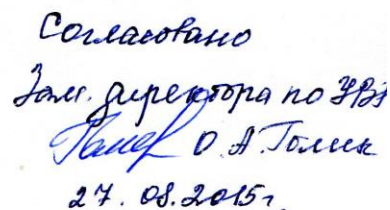 Согласовано
Зам. директора по УВР
О.А. Голик
27.08.2015г.